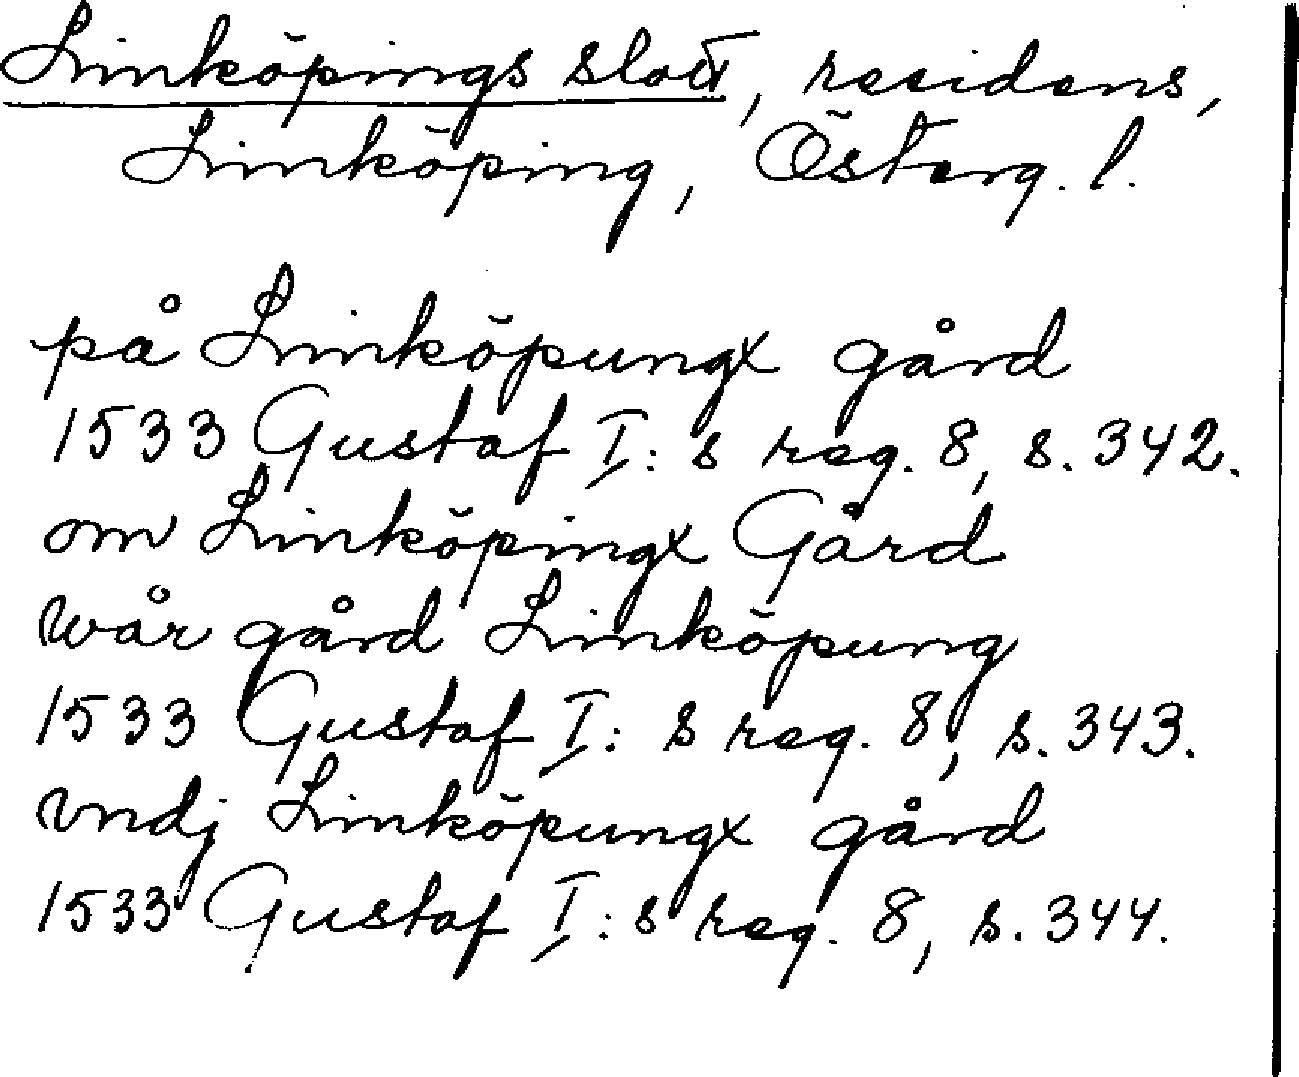 Linköpings slott, residens,
Linköping, Österg. l.
på Linköpungx gård
1533 Gustaf I:s reg. 8, s. 342.
om Linköpingx Gård
wår gård Linköpung
1533 Gustaf I:s reg. 8, s. 343.
vndj Linköpungx gård
1533 Gustaf I:s reg. 8, s. 344.